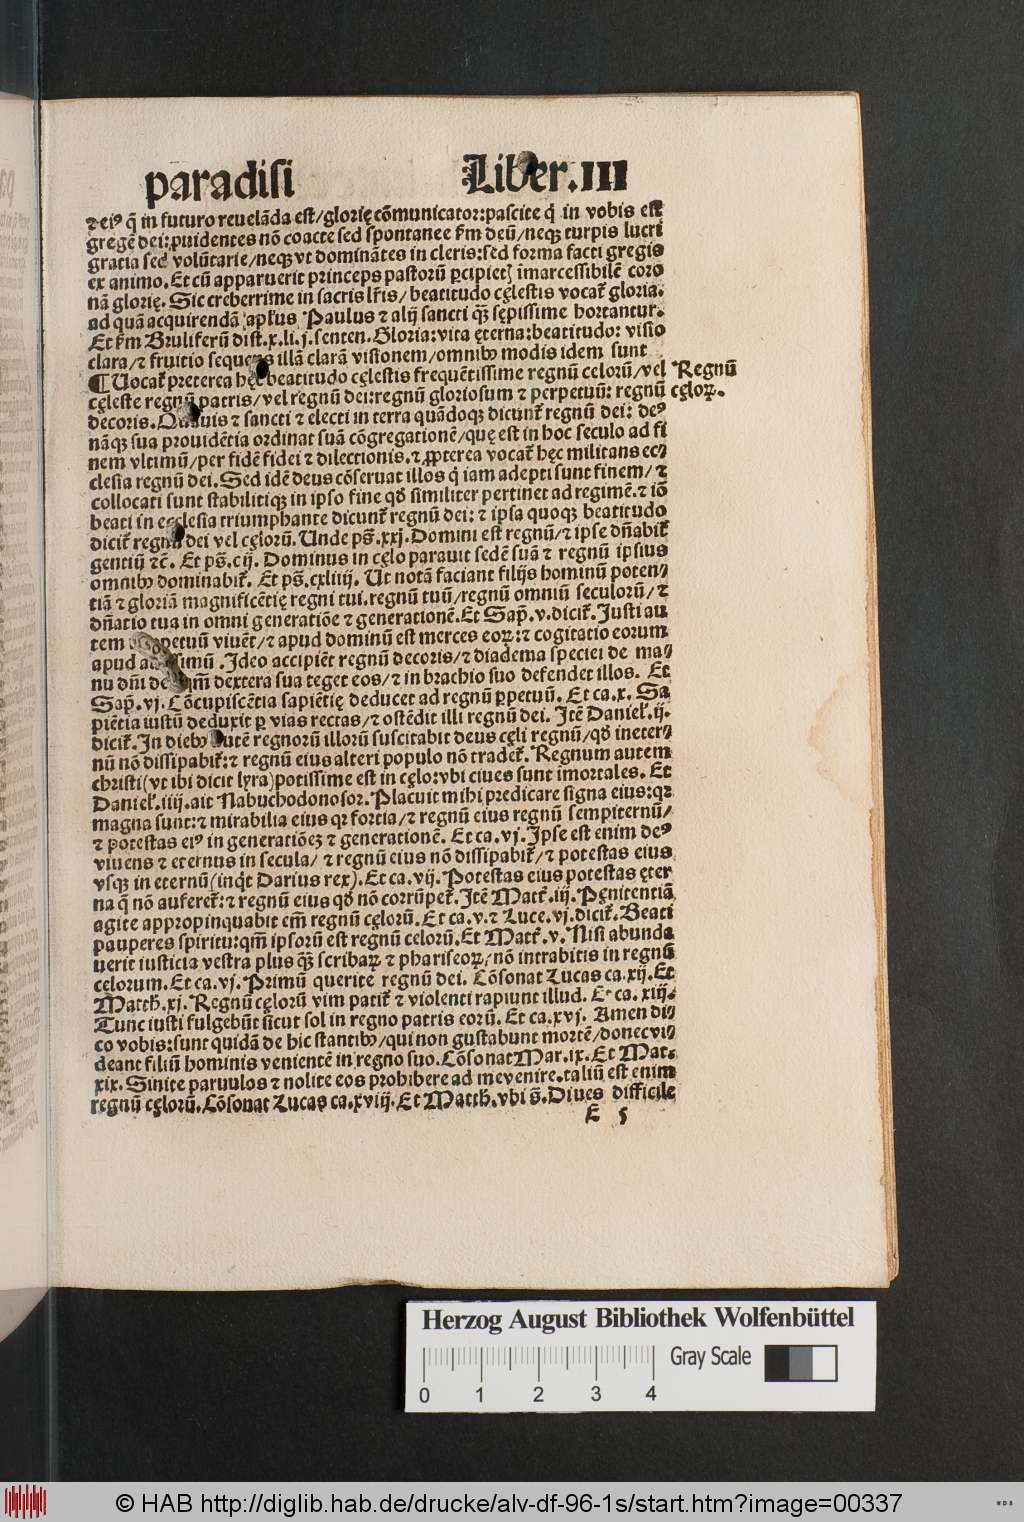 paradisi Liber.III
⁊ eiꝰ q̃ in futuro reuelãda est/glorię cõmunicator:pascite q̃ in vobis est
gregẽ dei:ꝓuidentes nõ coacte sed spontanee ẜm deũ/neqꝫ turpis lucri
gratia sed volũtarie/neqꝫ vt dominãtes in cleris:sed forma facti gregis
ex animo. Et cũ apparuerit princeps pastorũ ꝑcipietꝭ ĩmarcessibilẽ coro
nã glorię. Sic creberrime in sacris lr̃is/beatitudo cęlestis vocat̃ gloria.
ad quã acquirendã apl̃us Paulus ⁊ alij sancti qꝫ̃ sępissime hortantur.
Et ẜm Bruliferũ dist.x.li.j.senten. Gloria:vita ęterna:beatitudo: visio
clara/⁊ fruitio sequens illã clarã visionem/omnibꝫ modis idem sunt
¶ Uocat̃ preterea hęc beatitudo cęlestis frequẽtissime regnũ celorũ/vel
cęleste regnũ patris/vel regnũ dei:regnũ gloriosum ⁊ perpetuũ: regnũ
Regnũ
cęloꝝ.
decoris. Quãuis ⁊ sancti ⁊ electi in terra quãdoqꝫ dicunt̃ regnũ dei: deꝰ
nãqꝫ sua prouidẽtia ordinat suã cõgregationẽ/quę est in hoc seculo ad fi
nem vltimũ/per fidẽ fidei ⁊ dilectionis.⁊ ꝓpterea vocat̃ hęc militans ec⸗
clesia regnũ dei. Sed idẽ deus cõseruat illos q̃ iam adepti sunt finem/ ⁊
collocati sunt stabilitiqꝫ in ipso fine qđ similiter pertinet ad regimẽ.⁊ iõ
beati in ecclesia triumphante dicunt̃ regnũ dei: ⁊ ipsa quoqꝫ beatitudo
dicit̃ regnũ dei vel cęlorũ. Unde ps̃.xxj. Domini est regnũ/⁊ ipse dñabit̃
gentiũ ⁊c̃. Et ps̃.cij. Dominus in cęlo parauit sedẽ suã ⁊ regnũ ipsius
omnibꝫ dominabit̃. Et ps̃.cxliiij. Ut notã faciant filijs hominũ poten⸗
tiã ⁊ gloriã magnificẽtię regni tui. regnũ tuũ/regnũ omniũ seculorũ/ ⁊
dñatio tua in omni generatiõe ⁊ generationẽ. Et Sap̃.v.dicit̃. Justi au
tem petuũ viuẽt/⁊ apud dominũ est merces eoꝝ:⁊ cogitatio eorum
apud simũ .Ideo accipiẽt regnũ decoris/⁊ diadema speciei de ma⸗
nu dñi de qm̃ dextera sua teget eos/⁊ in brachio suo defendet illos. Et
Sap̃.vj. Cõcupiscẽtia sapiẽtię deducet ad regnũ ꝑpetuũ. Et ca.x. Sa
piẽtia iustũ deduxit ꝑ vias rectas/⁊ ostẽdit illi regnũ dei. Itẽ Daniel̃.ij.
dicit̃. In diebꝫ autẽ regnorũ illorũ suscitabit deus cęli regnũ/qđ ineter⸗
nũ nõ dissipabit̃:⁊ regnũ eius alteri populo nõ tradet̃. Regnum autem
christi(vt ibi dicit lyra)potissime est in cęlo:vbi ciues sunt imortales. Et
Daniel̃.iiij.ait Nabuchodonosor. Placuit mihi predicare signa eius:qꝛ
magna sunt:⁊ mirabilia eius qꝛ fortia/⁊ regnũ eius regnũ sempiternũ/
⁊ potestas eiꝰ in generatiõeꝫ ⁊ generationẽ. Et ca.vj. Ipse est enim deꝰ
viuens ⁊ eternus in secula/ ⁊ regnũ eius nõ dissipabit̃/⁊ potestas eius
vsqꝫ in eternũ(inq̃t Darius rex). Et ca.vij. Potestas eius potestas ęter
na q̃ nõ auferet̃:⁊ regnũ eius qđ nõ corrũpet̃. Itẽ Matt̃.iij. Pęnitentiã
agite appropinquabit em̃ regnũ cęlorũ. Et ca.v.⁊ Luce.vj.dicit̃. Beati
pauperes spiritu:qm̃ ipsorũ est regnũ celorũ. Et Matt̃.v. Nisi abunda
uerit iusticia vestra plus qꝫ̃ scribaꝝ ⁊ phariseoꝝ/nõ intrabitis in regnũ
celorum. Et ca.vj. Primũ querite regnũ dei. Cõsonat Lucas ca.xij. Et
Matth̃.xj. Regnũ cęlorũ vim patit̃ ⁊ violenti rapiunt illud. Et ca.xiij.
Tunc iusti fulgebũt sicut sol in regno patris eorũ. Et ca.xvj. Amen di⸗
co vobis:sunt quidã de hic stantibꝫ/qui non gustabunt mortẽ/donec vi⸗
deant filiũ hominis venientẽ in regno suo. Cõsonat Mar.ix. Et Mat.
xix. Sinite paruulos ⁊ nolite eos prohibere ad me venire. taliũ est enim
regnũ cęlorũ. Cõsonat Lucas ca.xviij. Et Matth̃.vbi s̃. Diues difficile
E 5
Herzog August Bibliothek Wolfenbüttel
Gray Scale
0 1 2 3 4
© HAB http://diglib.hab.de/drucke/alv-df-96-1s/start.htm?image=00337